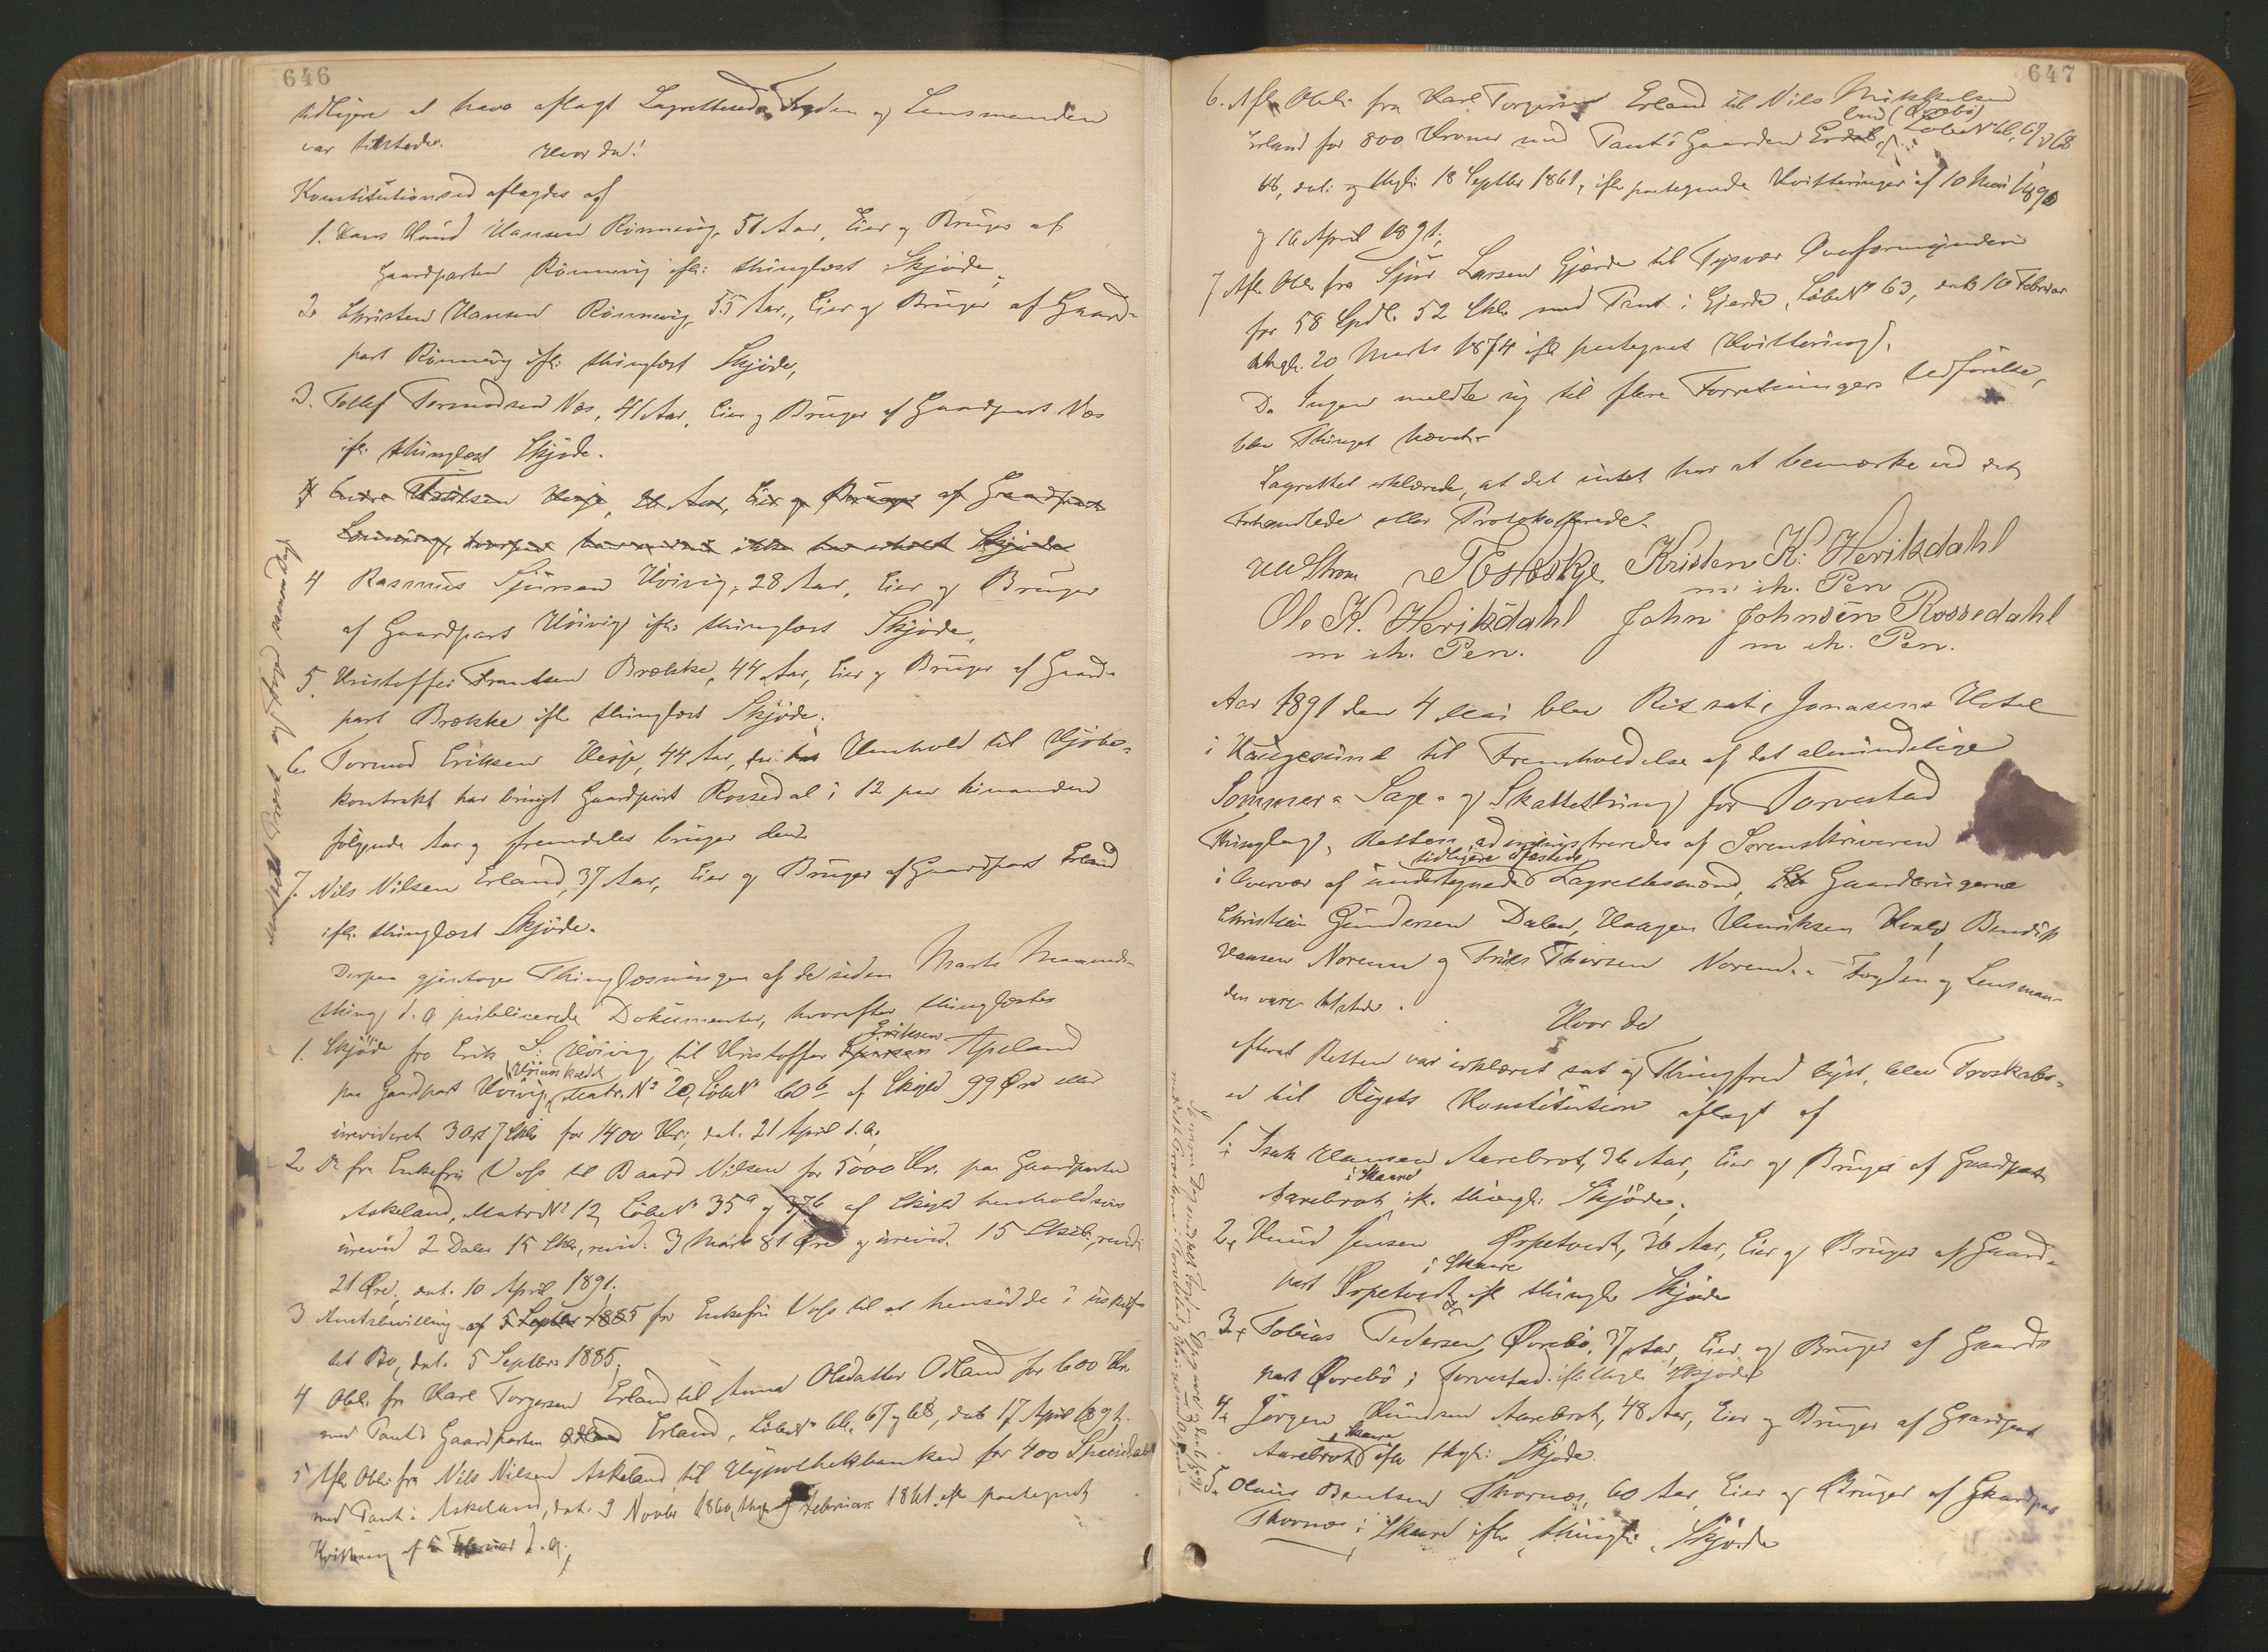 646
tidligere at have aflagt Lagrettesed. Fogden og Lensmanden
var tilstede.
Hvor da!
Konstitutionsed aflagdes af
1. Hans Knud Hansen Rönnevig, 51 Aar, Eier og Bruger af
Gaardparten Rönnevig ifl: thinglæst Skjöde,
2. Christen Hansen Rönnevig, 55 Aar, Eier og Bruger af Gaard-
part Rönnevig ifl: thinglæst Skjöde,
3. Tollef Tormodsen Næs, 41 Aar, Eier og Bruger af Gaardpart Næs
ifl: thinglæst Skjöde.
Aar, Eier og Bruger af Gaardpart
ikke har erholdt Skjöde
4 Rasmus Sjursen Höivig, 28 Aar, Eier og Bruger
af Gaardpart Höivig ifl: thinglæst Skjöde,
5. Kristoffer Frantsen Brække, 44 Aar, Eier og Bruger af Gaard-
part Brække ifl: thinglæst Skjöde.
6. Tormod Eriksen Hesje, 44 Aar, der i Henhold til Kjöbe-
kontrakt har brugt Gaardpart Rossedal i 12 paa hinanden
følgende Aar og fremdeles bruger den.
7. Nils Nilsen Erland, 37 Aar, Eier og Bruger af Gaardpart Erland
ifl: thinglæst Skjöde.
Derpaa gjentoges Thinglæsningen af de siden Marts Maaneds-
thing d. A. publicerede Dokumenter, hvorefter thinglæstes
Eriksen
1. Skjöde fra Erik S. Höivig til Kristoffer Sjursen Apeland
kaldet
paa Gaardpart Höivig, Matr. No 20, Löbe No 60 b af Skyld 99 Øre eller
urevideret 3 Ort 7 Skil for 1400 Kr., dat. 21 April d. A.,
2. Do fra Enkefru Voss til Baard Nilsen for 5000 Kr. paa Gaardparten
Askeland, Matr No 12, Löbe No 35 a og 37 b af Skyld henholdsvis
urevid 2 Daler 15 Skil, revid. 3 Mark 81 Øre og urevid. 15 Skil., revid.
21 Øre, dat. 10 April 1891.
3 Amtsbevilling af 5 Septbr 1885 for Enkefru Voss til at hensidde i uskiftet
Bo, dat. 5 Septbr. 1885,
4 Obl. fra Karl Torgersen Erland til Anna Olsdatter Odland for 600 Kr.
med Pant i Gaardparten Odland Erland, Löbe No 66, 67 og 68, dat. 17 April 1891.
5 Afl. Obl. fra Nils Nilsen Askeland til Hypothekbanken for 400 Speciedaler
med Pant i Askeland, dat. 9 Novbr 1860, thgl. 9 Februar 1861, ifl. paategnet
Kvittering af 6 Februar d. A.,
647
6. Afl. Obl. fra Karl Torgersen Erland til Nils Mikkelsen
land (Øvrebö)
Erland for 800 Kroner med Pant i Gaarden Erdal, Löbe No 66, 67 og 68
68, dat. og thgl. 18 Septbr 1861, ifl. paategnede Kvitteringer af 10 Mai 1890
og 16 April 1891,
7 Afl. Obl. fra Sjur Larsen Gjerde til Tysvær Overformynderi
for 58 Spdl. 52 Skil. med Pant i Gjerde, Löbe No 63, dat. 10 Februar
thgl. 20 Marts 1874 ifl. paategnet Kvittering.
Da Ingen meldte sig til flere Forretningers Udførelse,
blev Thinget hævet.
Lagrettet erklærede, at det intet har at bemærke ved det
Forhandlede eller Protokollerede.
Kristen K. Heriksdahl
m. ih. Pen
Ole K. Heriksdahl John Johnsen Rossedahl
m ih. Pen. m ih. Pen.
Aar 1891 den 4 Mai blev Ret sat i Jonasens Hotel
i Haugesund til Fremholdelse af det almindelige
Sommer- Sage- og Skattething for Torvestad
Thinglag, Retten administreredes af Sorenskriveren
tidligere edfæstede
i Overvær af undertegnede Lagrettesmænd, Gaardbrugerne
Christian Gundersen Dalen, Haagen Henriksen Hvaly, Bendik
Hansen Noreim og Friks Thorsen Noreim. Fogden og Lensman-
den vare tilstede.
Hvor da
efterat Retten var erklæret sat og Thingfred lyst, blev Troskabs-
ed til Rigets Konstitution aflagt af
1. Isak Hansen Aarebrot, 36 Aar, Eier og Bruger af Gaardpart
i Skaare
Aarebrot ifl. thingl. Skjöde,
2. Knud Jensen Ørpetvedt, 36 Aar, Eier og Bruger af Gaard-
i Skaare
part Ørpetvedt ifl. thingl. Skjöde
3. Tobias Pedersen Øvrebö, 37 Aar, Eier og Bruger af Gaard-
part Øvrebö i Torvestad ifl. thgl. Skjöde
4. Jørgen Knudsen Aarebrot, 48 Aar, Eier og Bruger af Gaardpart
i Skaare
Aarebrot ifl. thgl. Skjöde.
5. Olaus Bentsen Thornæs, 60 Aar, Eier og Bruger af Gaardpar
Thornæs i Skaare ifl. thingl. Skjöde